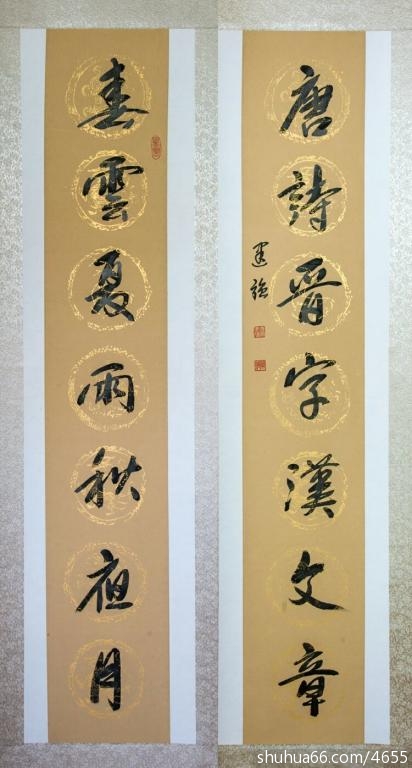 春雲夏雨秋夜月
唐詩晉字漢文章
shuhua66.com/4655